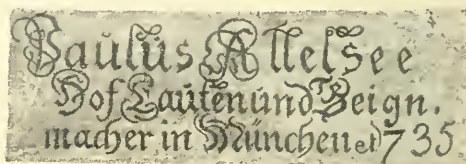 Paulus Alletsee
Hof Lauten und Geign.
macher in München 1735